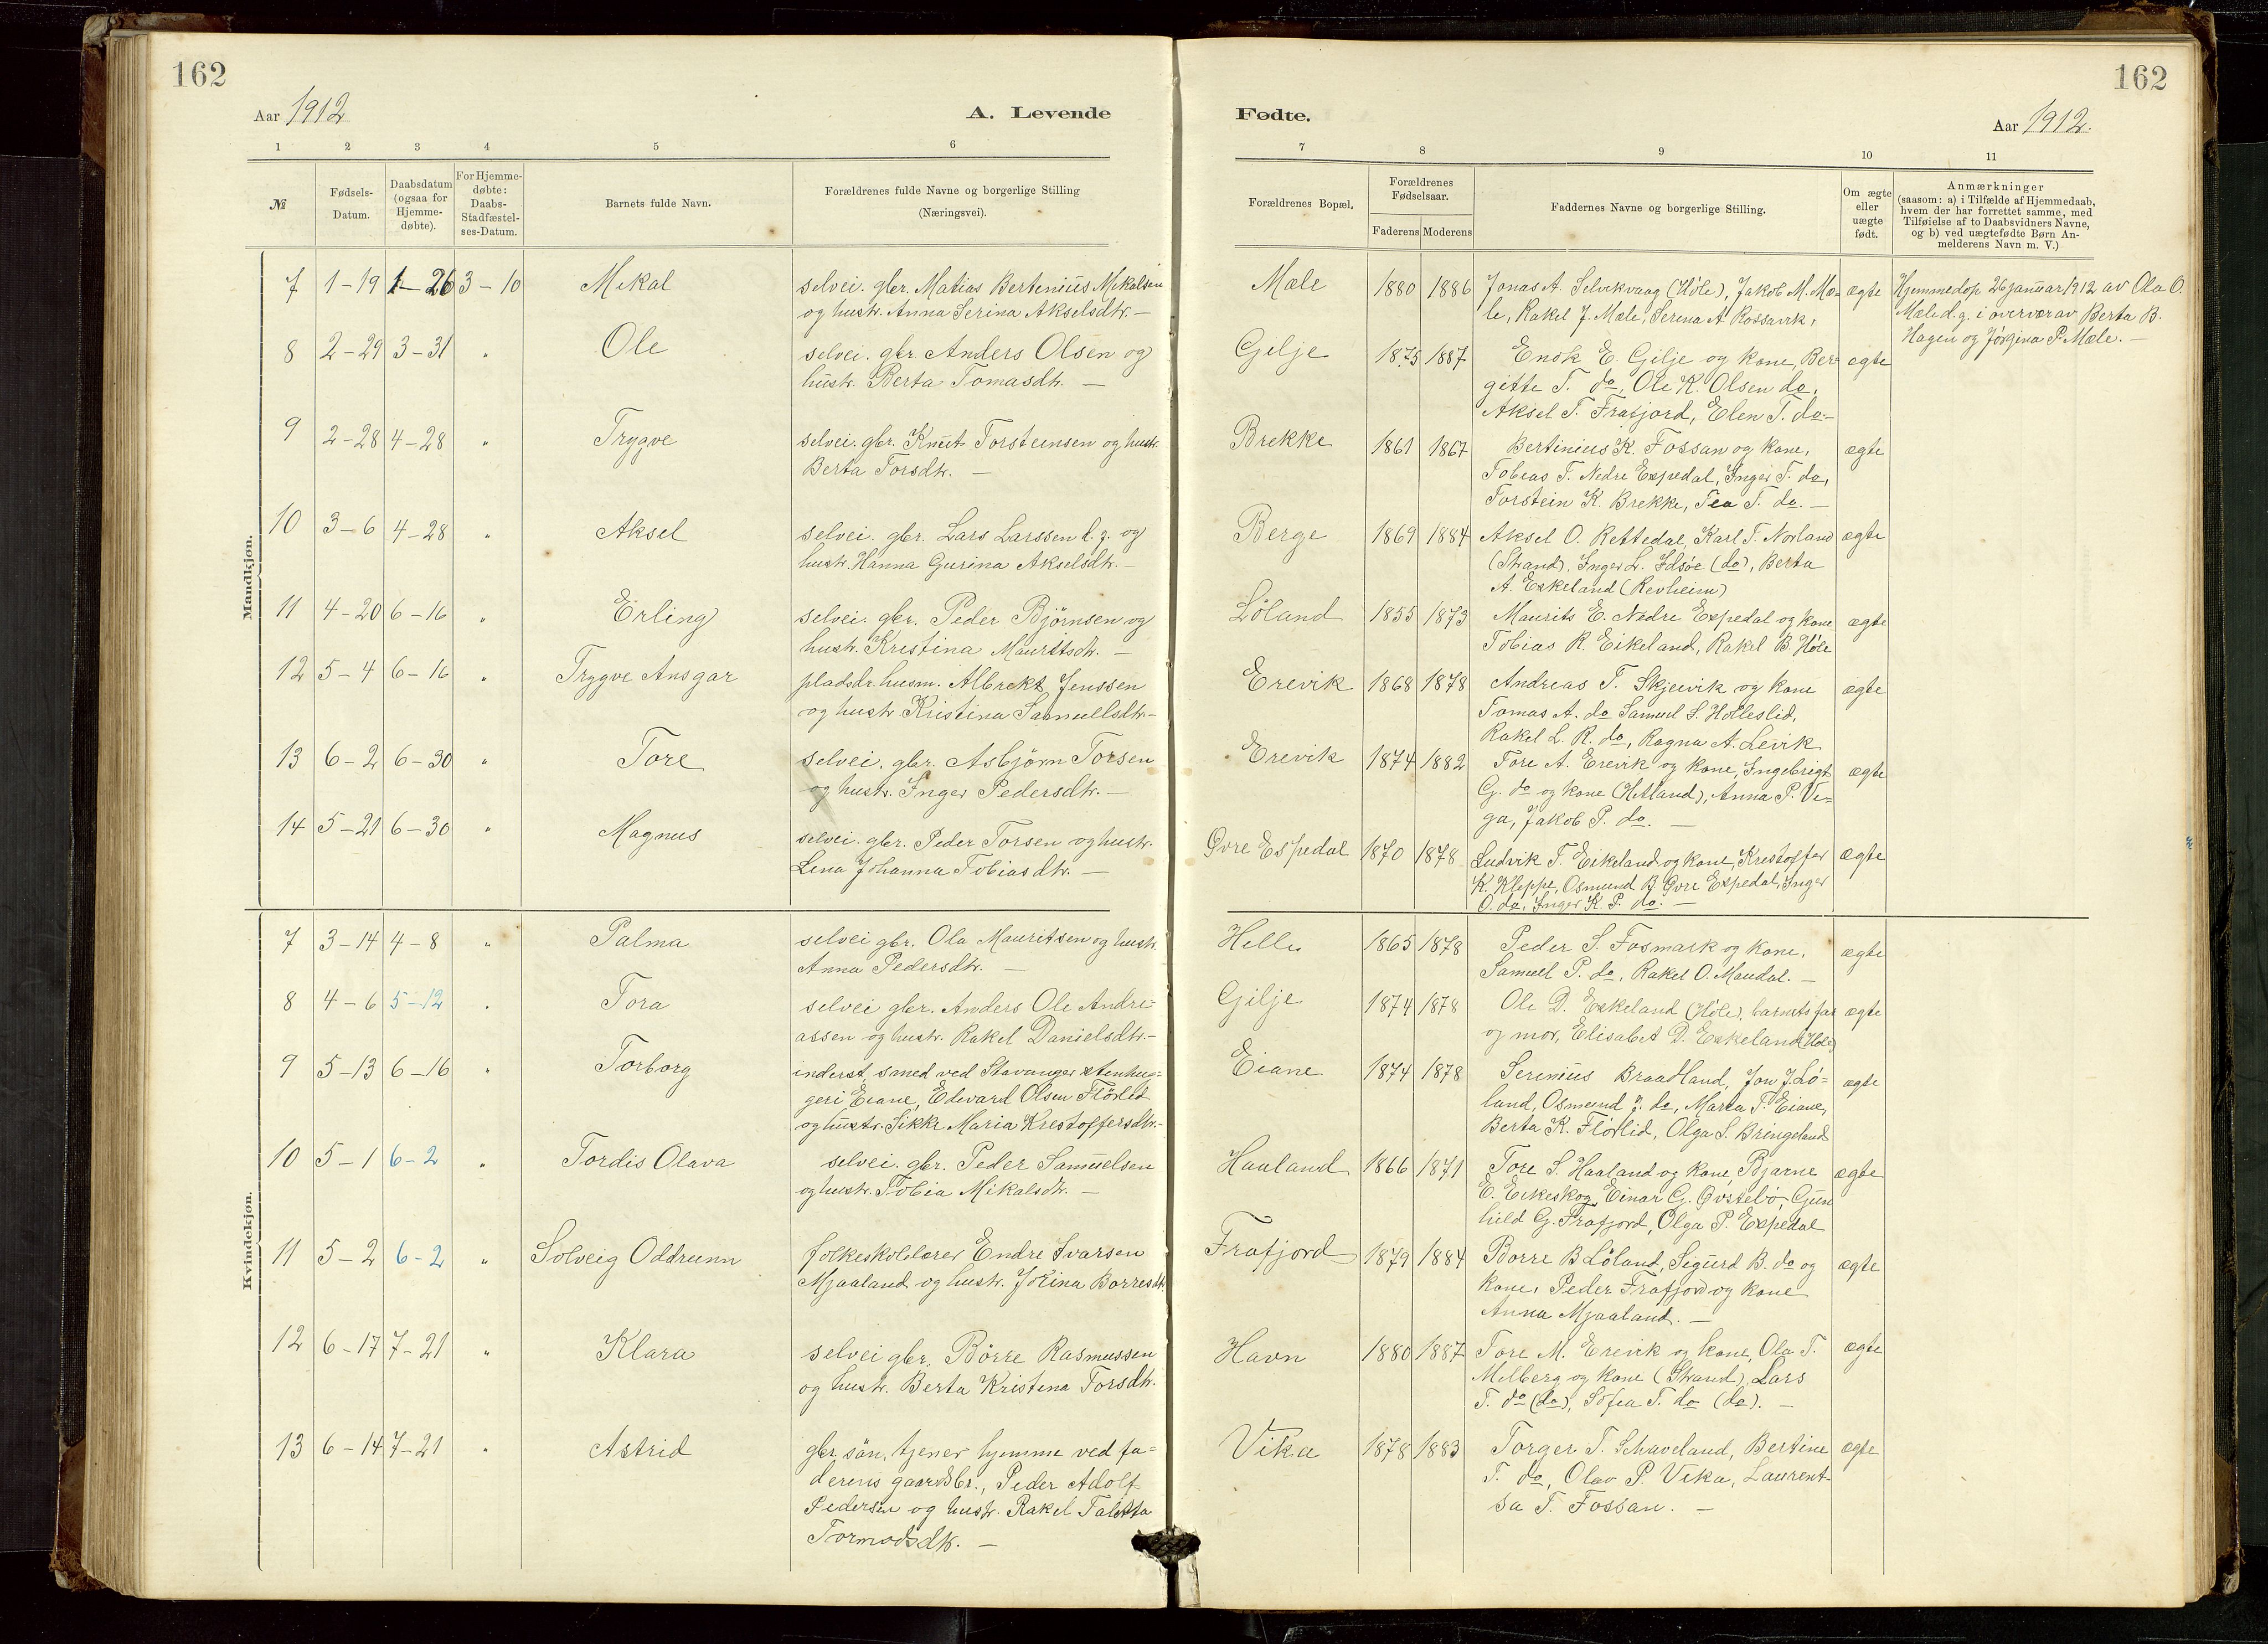 162
162
Aar 1912
A. Levende
Fødte.
Aar 1912.
1 2 3 4 5 6
7 8 9 10 11
№
Fødsels-Datum.
Daabsdatum (ogsaa for Hjemme-døbte).
For Hjemme-døbte: Daabs-Stadfæstel-ses-Datum.
Barnets fulde Navn.
Forældrenes fulde Navne og borgerlige Stilling
(Næringsvei).
Forældrenes Bopæl.
Forældrenes Fødselsaar.
Faderens Moderens
Faddernes Navne og borgerlige Stilling.
Om ægte eller uægte født.
Anmærkninger
(saasom: a) i Tilfælde af Hjemmedaab,
hvem der har forrettet samme, med
Tilføielse af to Daabsvidners Navne,
og b) ved uægtefødte Børn An-
melderens Navn m. V.)
Mandkjøn.
7 1-19 1-26 3-10 Mikal selvei. gbr. Matias Bertinius Mikalsen
og hustr. Anna Serina Akselsdtr. —
Mæle 1880 1886 Jonas A. Selvikvaag (Høle), Jakob M. Mæ- ægte
le, Rakel J. Mæle, Serina A. Rossavik,
Hjemmedøp 26 januar 1912 av Ola O.
Mæle d.y. i overvær av Berta B.
Hagen og Jørgina P. Mæle. —
8 2-29 3-31 " Ole selvei. gbr Anders Olsen og
hustr. Berta Tomasdtr. —
Gilje 1875 1887 Enok E. Gilje og kone, Ber- ægte
gitte T. do, Ole K. Olsen do,
Aksel T. Frafjord, Elen T. do. —
9 2-28 4-28 " Trygve selvei. gbr. Knut Torsteinsen og hustr.
Berta Torsdtr. —
Brekke 1861 1867 Bertinius K. Fossan og kone, ægte
Tobias T. Nedre Espedal, Inger T. do,
Torstein K. Brekke, Tea T. do. —
10 3-6 4-28 " Aksel selvei. gbr. Lars Larssen d.y. og
hustr. Hanna Gurina Akselsdtr. —
Berge 1869 1884 Aksel O. Rettedal, Karl T. Norland ægte
(Strand), Inger L. Idsøe (do), Berta
A. Eskeland (Revheim)
11 4-20 6-16 " Erling selvei. gbr. Peder Bjørnsen og
hustr. Kristina Mauritsdtr. —
Løland 1855 1873 Maurits E. Nedre Espedal og kone ægte
Tobias R. Eikeland, Rakel B. Høle
12 5-4 6-16 " Trygve Ansgar pladsdr. husm. Albrekt Jenssen
og hustr. Kristina Samuellsdtr. —
Erevik 1868 1878 Andreas T. Skjeivik og kone ægte
Tomas A. do Samuel S. Holleslid,
Rakel L. R. do, Ragna A. Levik
13 6-2 6-30 " Tore selvei. gbr. Asbjørn Torsen
og hustr. Inger Pedersdtr. —
Erevik 1874 1882 Tore A. Erevik og kone, Ingebrigt ægte
G. do og kone (Hetland), Anna P. Ve-
ga, Jakob P. do. —
14 5-21 6-30 " Magnus selvei. gbr. Peder Torsen og hustr.
Lena Johanna Tobiasdtr. —
Øvre Espedal 1870 1878 Ludvik T. Eikeland og kone, Kristoffer ægte
K. Kleppe, Osmund B. Øvre Espedal, Inger
O. do, Inger K. P. do. —
Kvindekjøn.
7 3-14 4-8 " Palma selvei gbr. Ola Mauritsen og hustr.
Anna Pedersdtr. —
Helle 1865 1878 Peder S. Fosmark og kone, ægte
Samuel P. do, Rakel O. Maudal. —
8 4-6 5-12 " Tora selvei gbr. Anders Ole Andre-
assen og hustr. Rakel Danielsdtr. —
Gilje 1874 1878 Ole D. Eskeland (Høle), barnets far ægte
og mor, Elisabet D. Eskeland (Høle)
9 5-13 6-16 " Torborg inderst, smed ved Stavanger stenhug-
geri Eiane, Edvard Olsen Flørlid
og hustr. Sikke Maria Kristoffersdtr. —
Eiane 1874 1878 Serinius Braadland, Jon J. Lø- ægte
land, Osmund J. do, Marta P. Eiane,
Berta K. Flørlid, Olga S. Bringeland
10 5-1 6-2 " Tordis Olava selvei. gbr. Peder Samuelsen
og hustr. Tobia Mikalsdtr. —
Haaland 1866 1871 Tore S. Haaland og kone, Bjarne ægte
E. Eikeskog, Einar G. Østebø, Gun
hild G. Frafjord, Olga P. Espedal
11 5-2 6-2 " Solveig Oddrunn folkeskolelærer Endre Ivarsen
Mjaaland og hustr. Jokina Børresdtr.
Frafjord 1879 1884 Børre B Løland, Sigurd B. do og ægte
kone, Peder Frafjord og kone
Anna Mjaaland. —
12 6-17 7-21 " Klara selvei gbr. Børre Rasmussen
og hustr. Berta Kristina Torsdtr.
Havn 1880 1887 Tore M. Erevik og kone, Ola T. ægte
Melberg og kone (Strand), Lars
T. do (do), Sofia T. do (do). —
13 6-14 7-21 " Astrid gbr. søn, tjener hjemme ved fa-
derens gaardsbr., Peder Adolf
Pedersen og hustr. Rakel Taletta
Tormodsdtr. —
Vika 1878 1883 Torger T. Schaveland, Bertine ægte
T. do, Olav P. Vika, Laurent-
sa T. Fossan. —